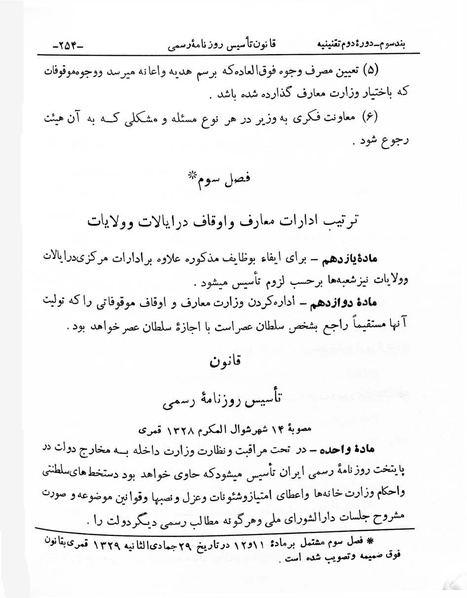 بند سوم ـ دورهٔ دوم تقنینیه قانون تأسیس روزنامهٔ رسمی ـ۲۵۴ـ
(۵) تعیین مصرف وجوه فوق‌العاده که برسم هدیه واعانه میرسد ووجوه موقوفات
که باختیار وزارت معارف گذارده شده باشد .
(۶) معاونت فکری به وزیر در هر نوع مسئله و مشکلی که به آن هیئت
رجوع شود.
فصل سوم*
ترتیب ادارات معارف و اوقاف در ایالات و ولایات
مادهٔ یازدهم ـ برای ایفاء بوظایف مذکوره علاوه بر ادارات مرکزی در ایالات
وولایات نیز شعبه‌ها برحسب لزوم تأسیس میشود .
مادهٔ دوازدهم ـ اداره کردن وزارت معارف و اوقاف موقوفاتی را که تولیت
آنها مستقیماً راجع بشخص سلطان عصر است با اجازهٔ سلطان عصر خواهد بود .
قانون
تأسیس روزنامهٔ رسمی
مصوبهٔ ۱۴ شهر شوال المکرم ۱۳۲۸ قمری
مادهٔ واحده ـ در تحت مراقبت و نظارت وزارت داخله به مخارج دولت در
پایتخت روزنامهٔ رسمی ایران تأسیس میشود که حاوی خواهد بود دستخط‌های سلطنتی
واحکام وزارت خانه‌ها واعطای امتیاز وشئونات وعزل ونصبها وقوانین موضوعه و صورت
مشروح جلسات دارالشورای ملی وهرگونه مطالب رسمی دیگر دولت را .
* فصل سوم مشتمل بر مادهٔ ۱۱و۱۲ در تاریخ ۲۹ جمادی الثانیه ۱۳۲۹ قمری بقانون
فوق ضمیمه وتصویب شده است .